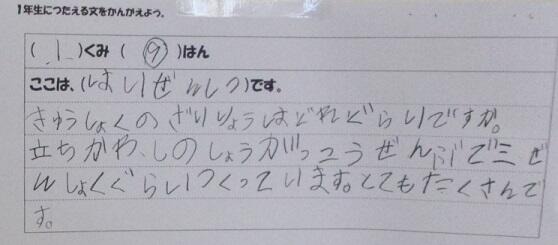 1年生につたえる文をかんがえよう。
(1)くみ(⑨)はん
ここは、(はいぜんしつ)です。
きゅうしょくのざいりょうはどれぐらいですか。
立ちかわ、しのしょうがっこうぜんぶで三ぜ
んしょくぐらいつくっています。とてもたくさんで
す。